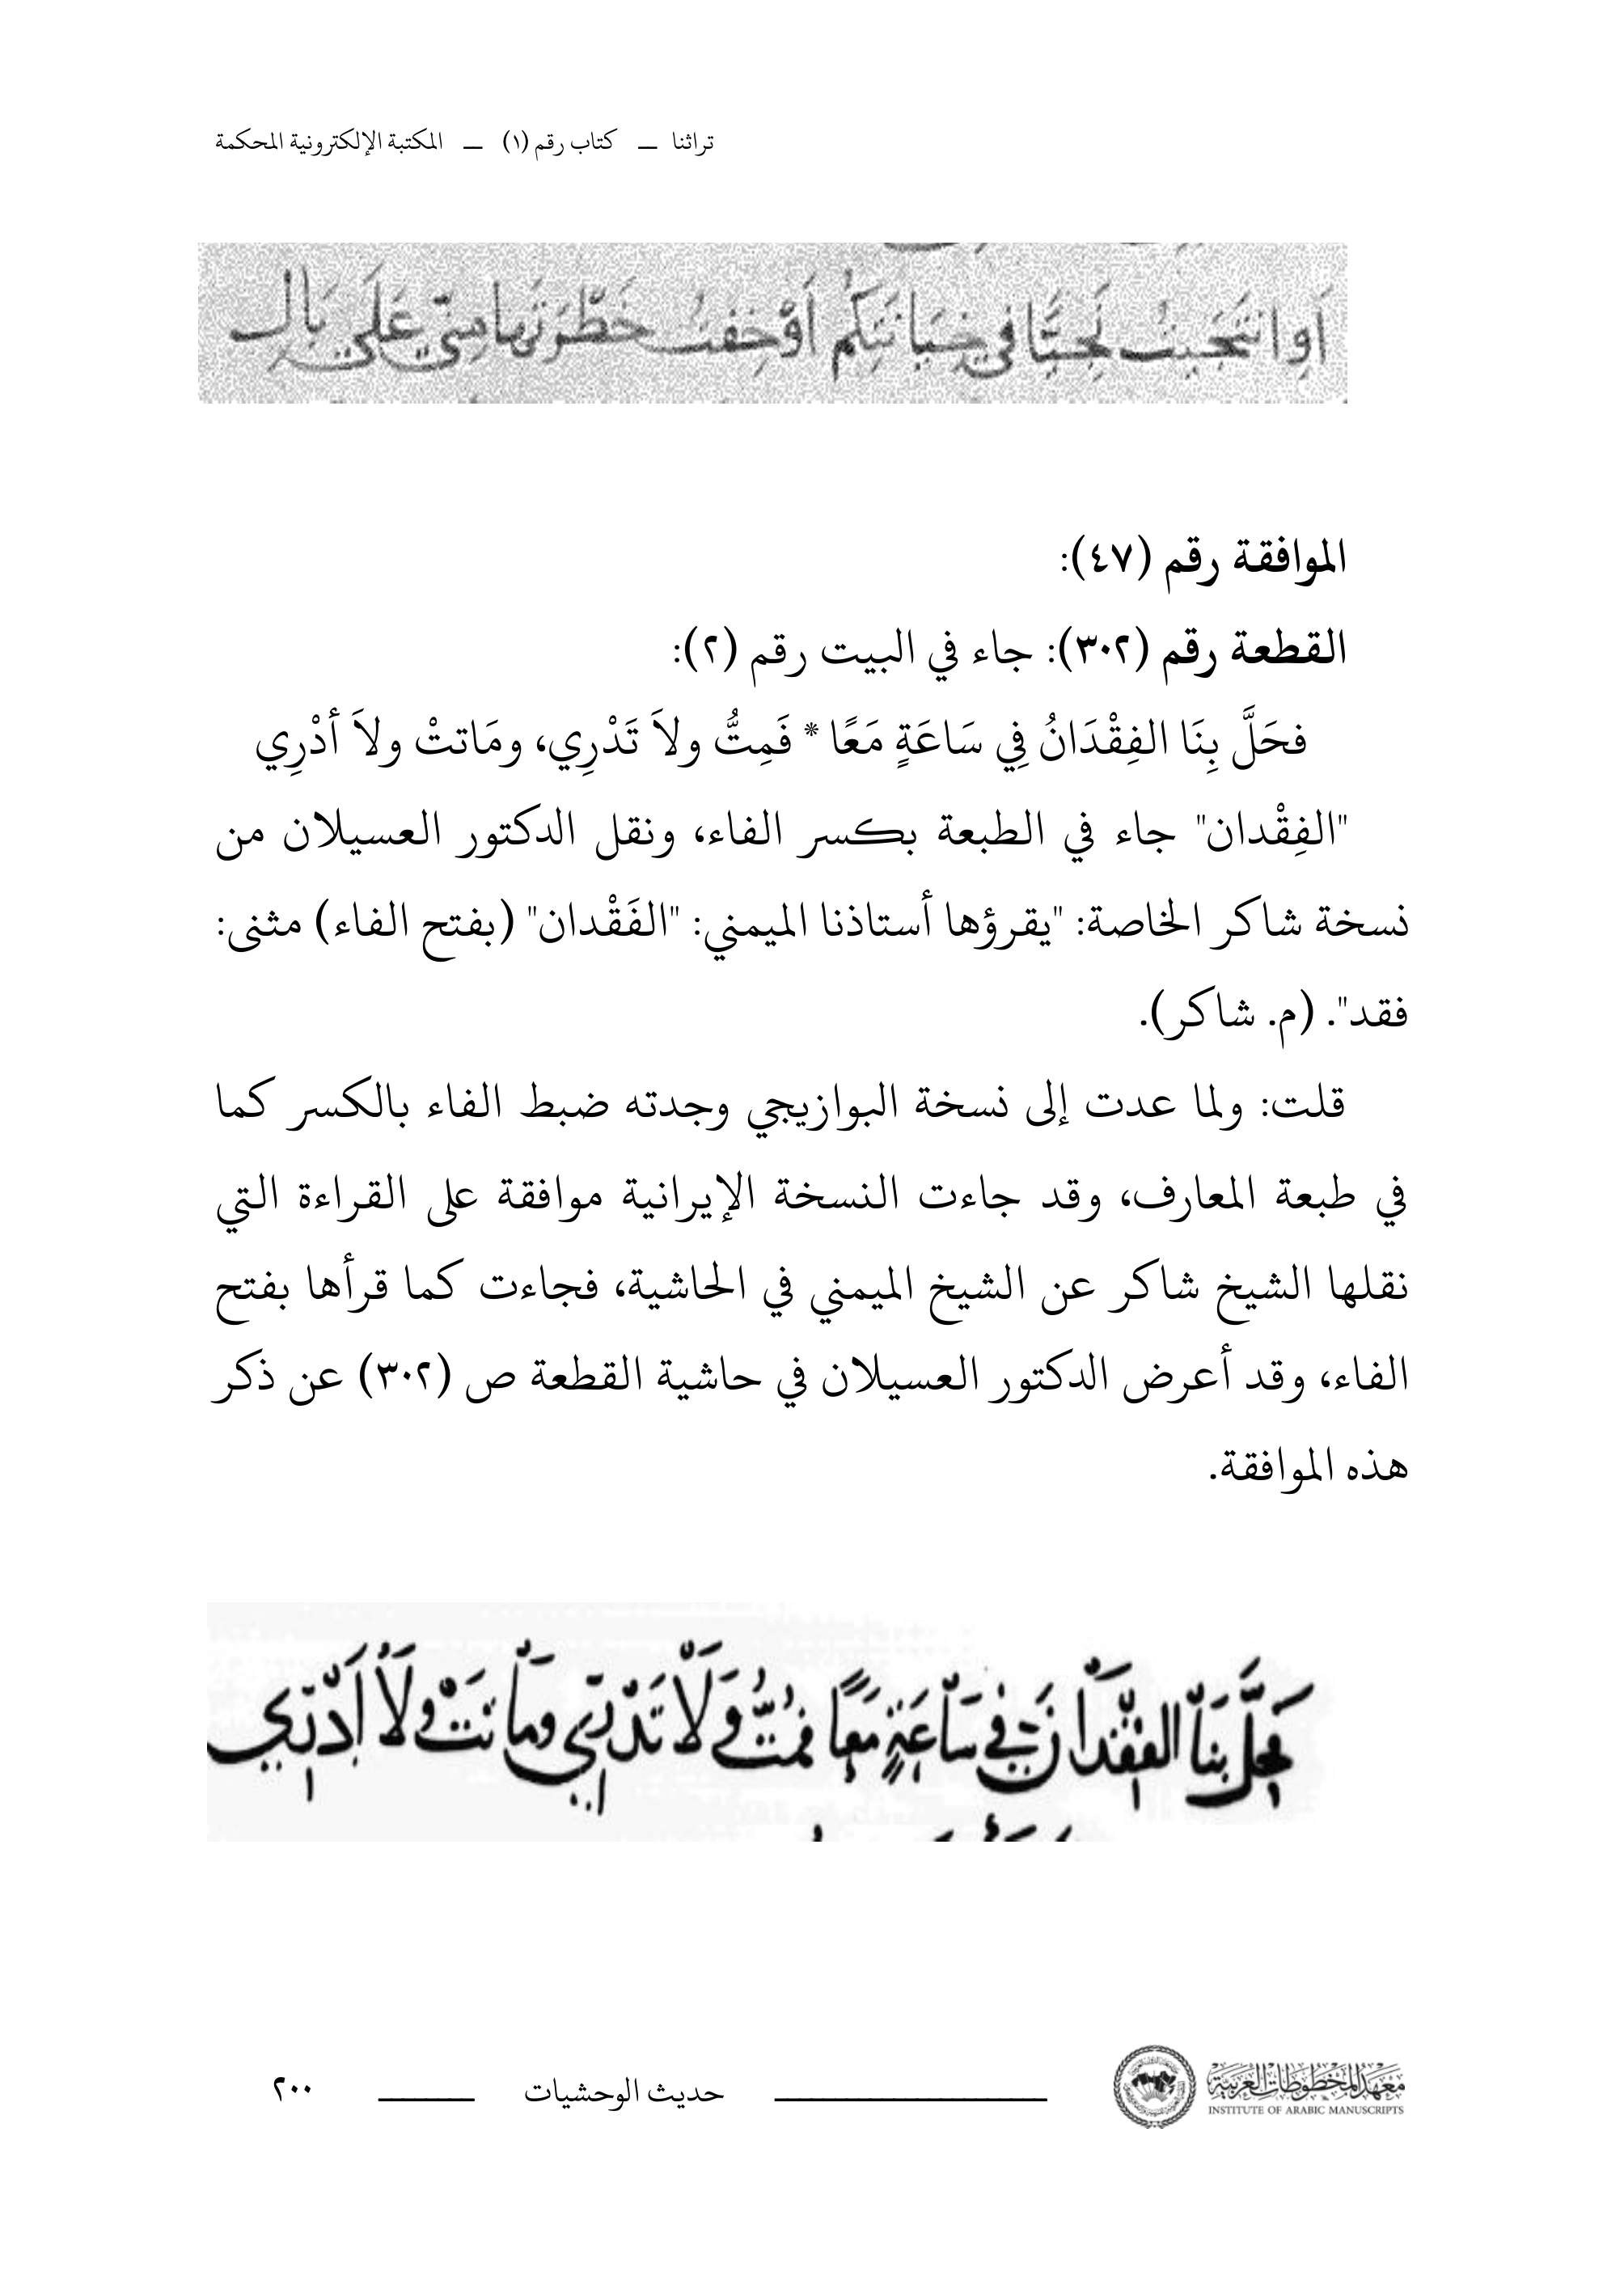 تراثنا — كتاب رقم (١) — المكتبة الإلكترونية المحكمة
في أو خفت على بال
الموافقة رقم (٤٧):
القطعة رقم (٣٠٢): جاء في البيت رقم (٢):
فحَلَّ بِنَا الفِقْدَانُ فِي سَاعَةٍ مَعًا * فَمِتُّ ولاَ تَدْرِي، ومَاتتْ ولاَ أدْرِي
"الفِقْدان" جاء في الطبعة بكسر الفاء، ونقل الدكتور العسيلان من
نسخة شاكر الخاصة: "يقرؤها أستاذنا الميمني: "الفَقْدان" (بفتح الفاء) مثنى:
فقد". (م. شاكر).
قلت: ولما عدت إلى نسخة البوازيجي وجدته ضبط الفاء بالكسر كما
في طبعة المعارف، وقد جاءت النسخة الإيرانية موافقة على القراءة التي
نقلها الشيخ شاكر عن الشيخ الميمني في الحاشية، فجاءت كما قرأها بفتح
الفاء، وقد أعرض الدكتور العسيلان في حاشية القطعة ص (٣٠٢) عن ذكر
هذه الموافقة.
فحلَّ بنَا الفقْدَان في سَاعَةٍ مَعًا فمُتُّ وَلَا تَدْرِي ومَا تَتْ وَلَا أَدْرِي
معهد المخطوطات العربية
INSTITUTE OF ARABIC MANUSCRIPTS
حديث الوحشيات
٢٠٠